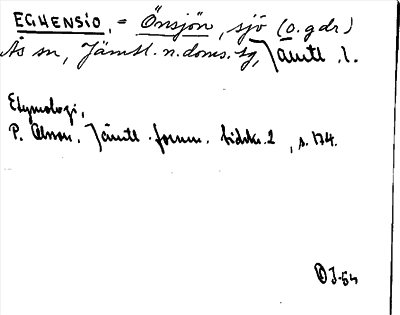 EGHENSIO, = Önsjön, sjö (o. gdr)
Ås sn, Jämtl. n. doms. tg, Jämtl. l.
Etymologi,
P. Olsson. Jämtl. fornm. tidskr. 2, s. 174.